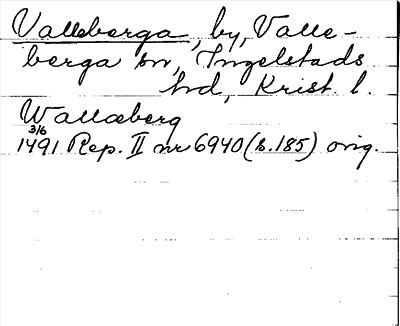 Valleberga, by, Valle-
berga sn, Ingelstads
hd, Krist. l.
Wallæberg
3/6
1491 Rep. II nr 6940 (s.185) orig.